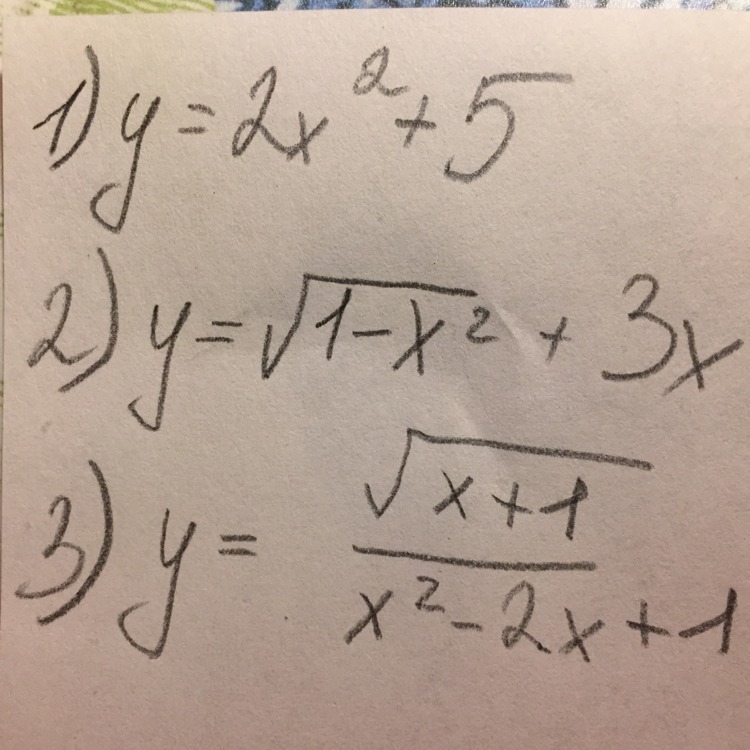 1) y = 2x² + 5
2) y = √(1-x²) + 3x
3) y = √(x+1) / (x² - 2x + 1)